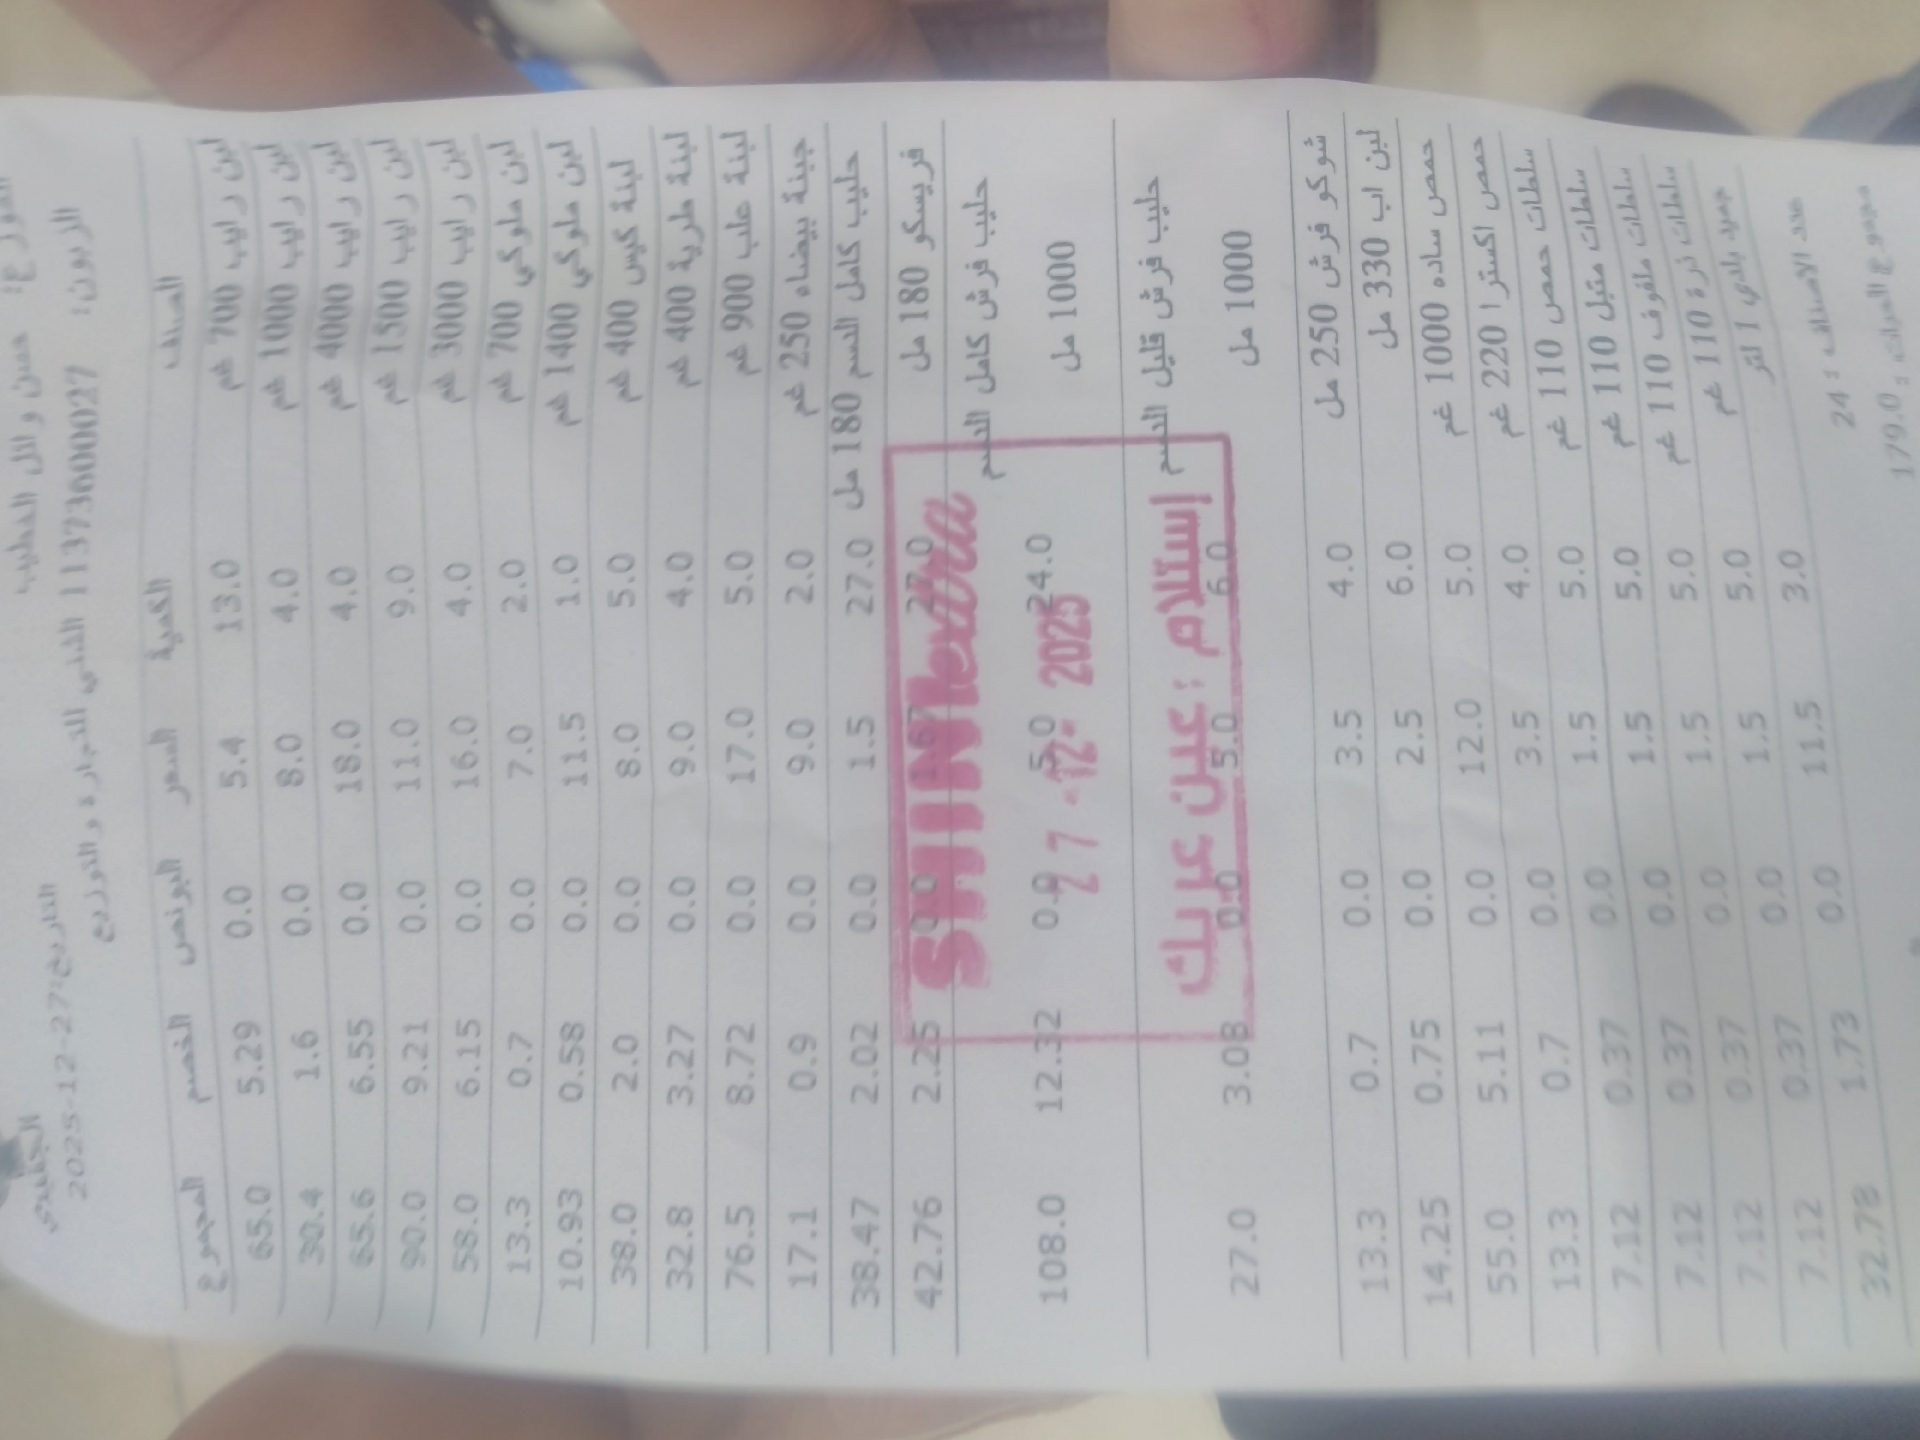 الموزع: حسن وائل الخطيب التاريخ:27-12-2025
الزبون: 11373600027 الشني للتجارة والتوزيع
الصنف الكمية السعر البونص الخصم المجموع
لبن رايب 700 غم 13.0 5.4 0.0 5.29 65.0
لبن رايب 1000 غم 4.0 8.0 0.0 1.6 30.4
لبن رايب 4000 غم 4.0 18.0 0.0 6.55 65.6
لبن رايب 1500 غم 9.0 11.0 0.0 9.21 90.0
لبن رايب 3000 غم 4.0 16.0 0.0 6.15 58.0
لبن ملوكي 700 غم 2.0 7.0 0.0 0.7 13.3
لبن ملوكي 1400 غم 1.0 11.5 0.0 0.58 10.93
لبنة كيس 400 غم 5.0 8.0 0.0 2.0 38.0
لبنة طرية 400 غم 4.0 9.0 0.0 3.27 32.8
لبنة علب 900 غم 5.0 17.0 0.0 8.72 76.5
جبنة بيضاء 250 غم 2.0 9.0 0.0 0.9 17.1
حليب كامل الدسم 180 مل 27.0 1.5 0.0 2.02 38.47
فريسكو 180 مل 27.0 1.67 0.0 2.25 42.76
حليب فرش كامل الدسم
1000 مل 24.0 5.0 0.0 12.32 108.0
حليب فرش قليل الدسم
1000 مل 6.0 5.0 0.0 3.08 27.0
SHINI extra
27 -12- 2025
إستلام : عين عريك
شوكو فرش 250 مل 4.0 3.5 0.0 0.7 13.3
لبن اب 330 مل 6.0 2.5 0.0 0.75 14.25
حمص ساده 1000 غم 5.0 12.0 0.0 5.11 55.0
حمص اكسترا 220 غم 4.0 3.5 0.0 0.7 13.3
سلطات حمص 110 غم 5.0 1.5 0.0 0.37 7.12
سلطات متبل 110 غم 5.0 1.5 0.0 0.37 7.12
سلطات ملفوف 110 غم 5.0 1.5 0.0 0.37 7.12
سلطات ذرة 110 غم 5.0 1.5 0.0 0.37 7.12
جميد بلدي 1 لتر 3.0 11.5 0.0 1.73 32.78
عدد الاصناف : 24
مجموع العبوات : 179.0